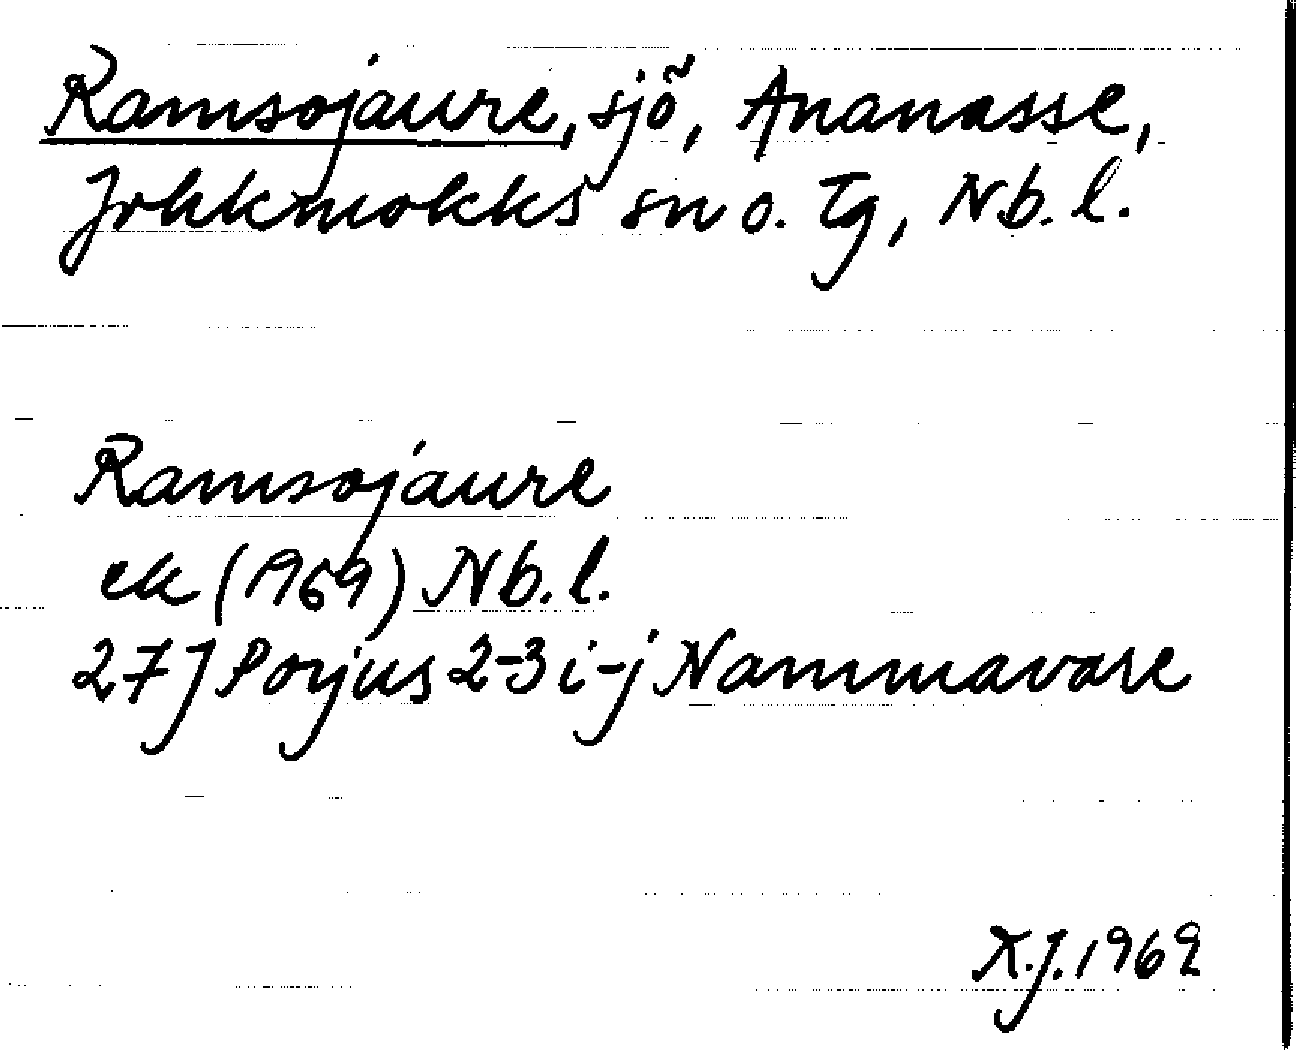 Ramsojaure, sjö, Ananasse,
Jokkmokks sn o. tg, Nb. l.
Ramsojaure
ek (1969) Nb. l.
27J Porjus 2-3 i-j Nammavare
1969